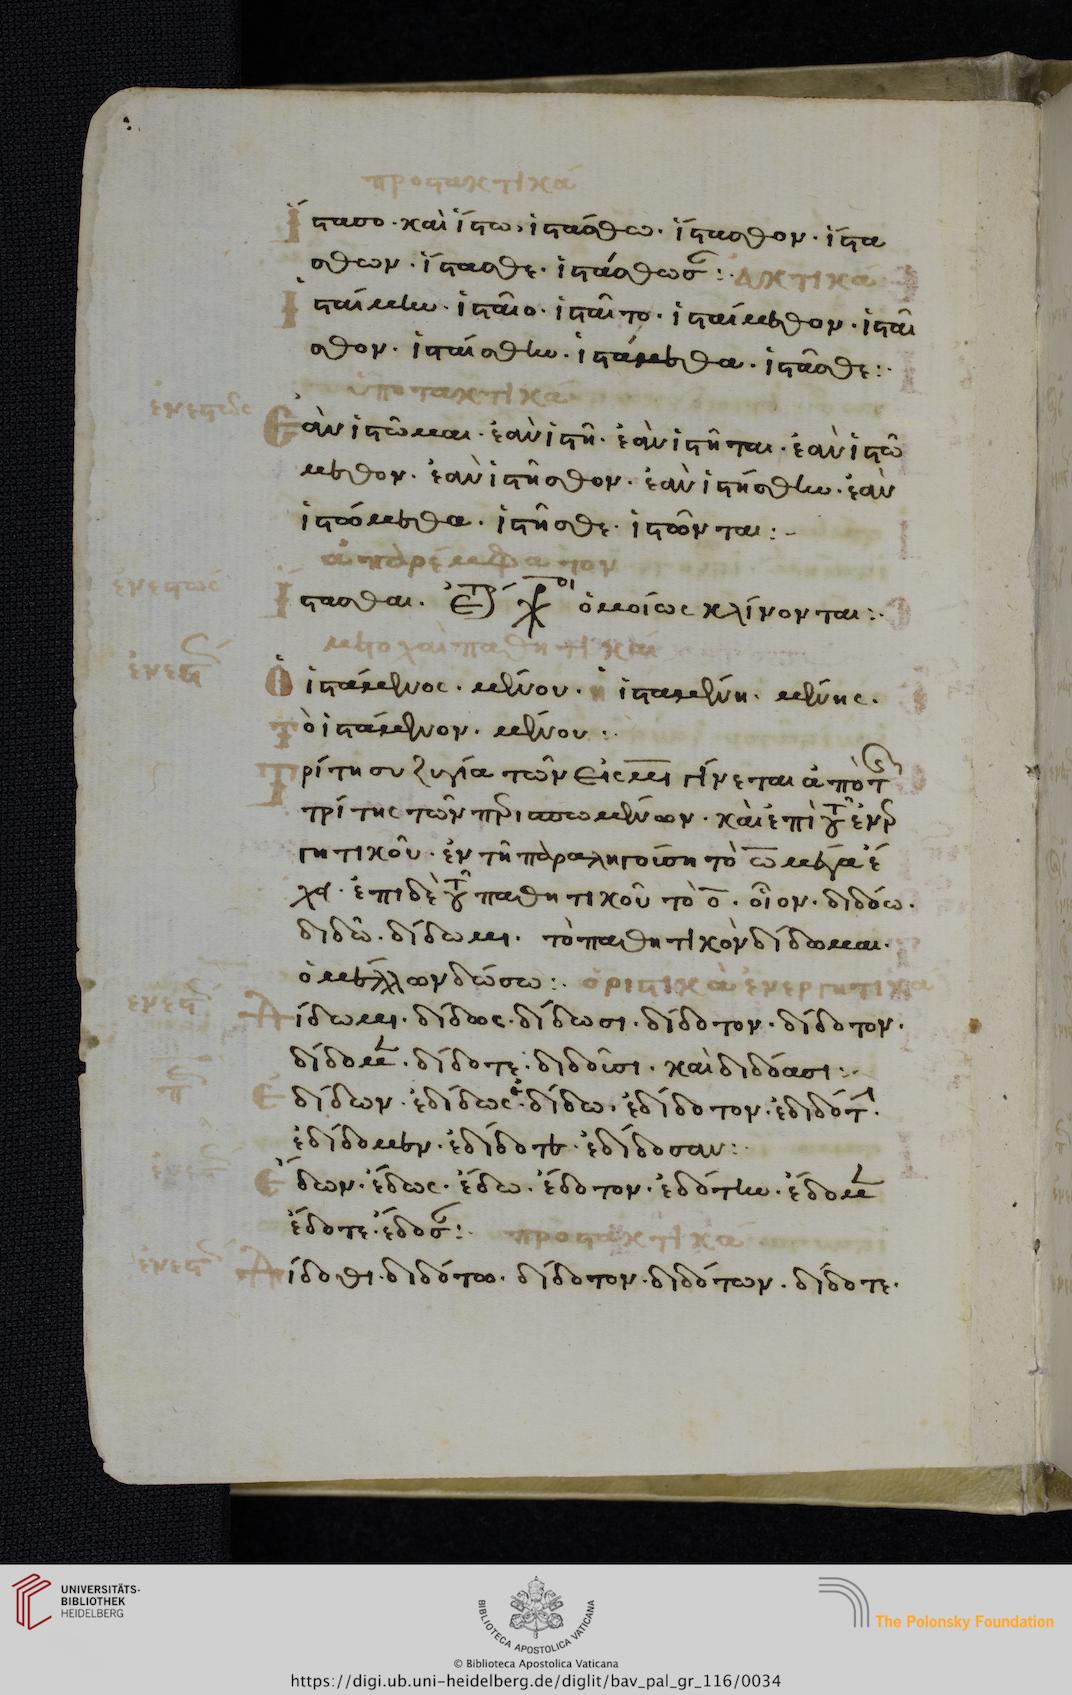 προστακτικά
ἵστασο· καὶ ἵστω, ἱστάσθω· ἵστασθον· ἱστά
σθων· ἵστασθε· ἱστάσθωσ(αν):· εὐκτικά
ἱσταίμην· ἱσταῖο· ἱσταῖτο· ἱσταίμεθον· ἱσταῖ
σθον· ἱσταίσθην· ἱσταίμεθα· ἱσταῖσθε:·
ὑποτακτικά
ἐνεστῶτος
Ἐὰν ἱστῶμαι· ἐὰν ἱστῇ· ἐὰν ἱστῆται· ἐὰν ἱστώ
μεθον· ἐὰν ἱστῆσθον· ἐὰν ἱστήσθην· ἐὰν
ἱστώμεθα· ἱστῆσθε· ἱστῶνται:-
ἀπαρέμφατον
ἐνεστώς
ἵστασθαι· ὁμοίως κλίνονται:·
μετοχαὶ παθητικαί
ἐνεστ
Ὁ ἱστάμενος· μένου· ἡ ἱσταμένη· μένης·
τὸ ἱστάμενον· μένου:·
Τρίτη συζυγία τῶν εἰς μι γίνεται ἀπὸ τ(ῆς)
τρίτης τῶν περισπωμένων· καὶ ἐπὶ τοῦ ἐνερ
γητικοῦ· ἐν τῇ παραληγούσῃ τὸ ω μέγα ἔ
χει· ἐπὶ δὲ τοῦ παθητικοῦ τὸ ο· οἷον· διδόω·
διδῶ· δίδωμι· τὸ παθητικὸν δίδωμαι·
ὁ μέλλων δώσω:· ὁριστικὰ ἐνεργητικά
ἐνεστ
Δίδωμι· δίδως· δίδωσι· δίδοτον· δίδοτον·
δίδομεν· δίδοτε· διδοῦσι· καὶ διδόασι:·
Ἐδίδων· ἐδίδως· ἐδίδω, ἐδίδοτον· ἐδιδότην·
ἐδίδομεν· ἐδίδοτε· ἐδίδοσαν:·
Ἔδων· ἔδως· ἔδω· ἔδοτον· ἐδότην· ἔδομεν
ἔδοτε· ἔδοσ(αν):· προστακτικά
ἐνεστ
Δίδοθι· διδότω· δίδοτον· διδότων· δίδοτε·
UNIVERSITÄTS-
BIBLIOTHEK
HEIDELBERG
BIBLIOTECA APOSTOLICA VATICANA
The Polonsky Foundation
© Biblioteca Apostolica Vaticana
https://digi.ub.uni-heidelberg.de/diglit/bav_pal_gr_116/0034